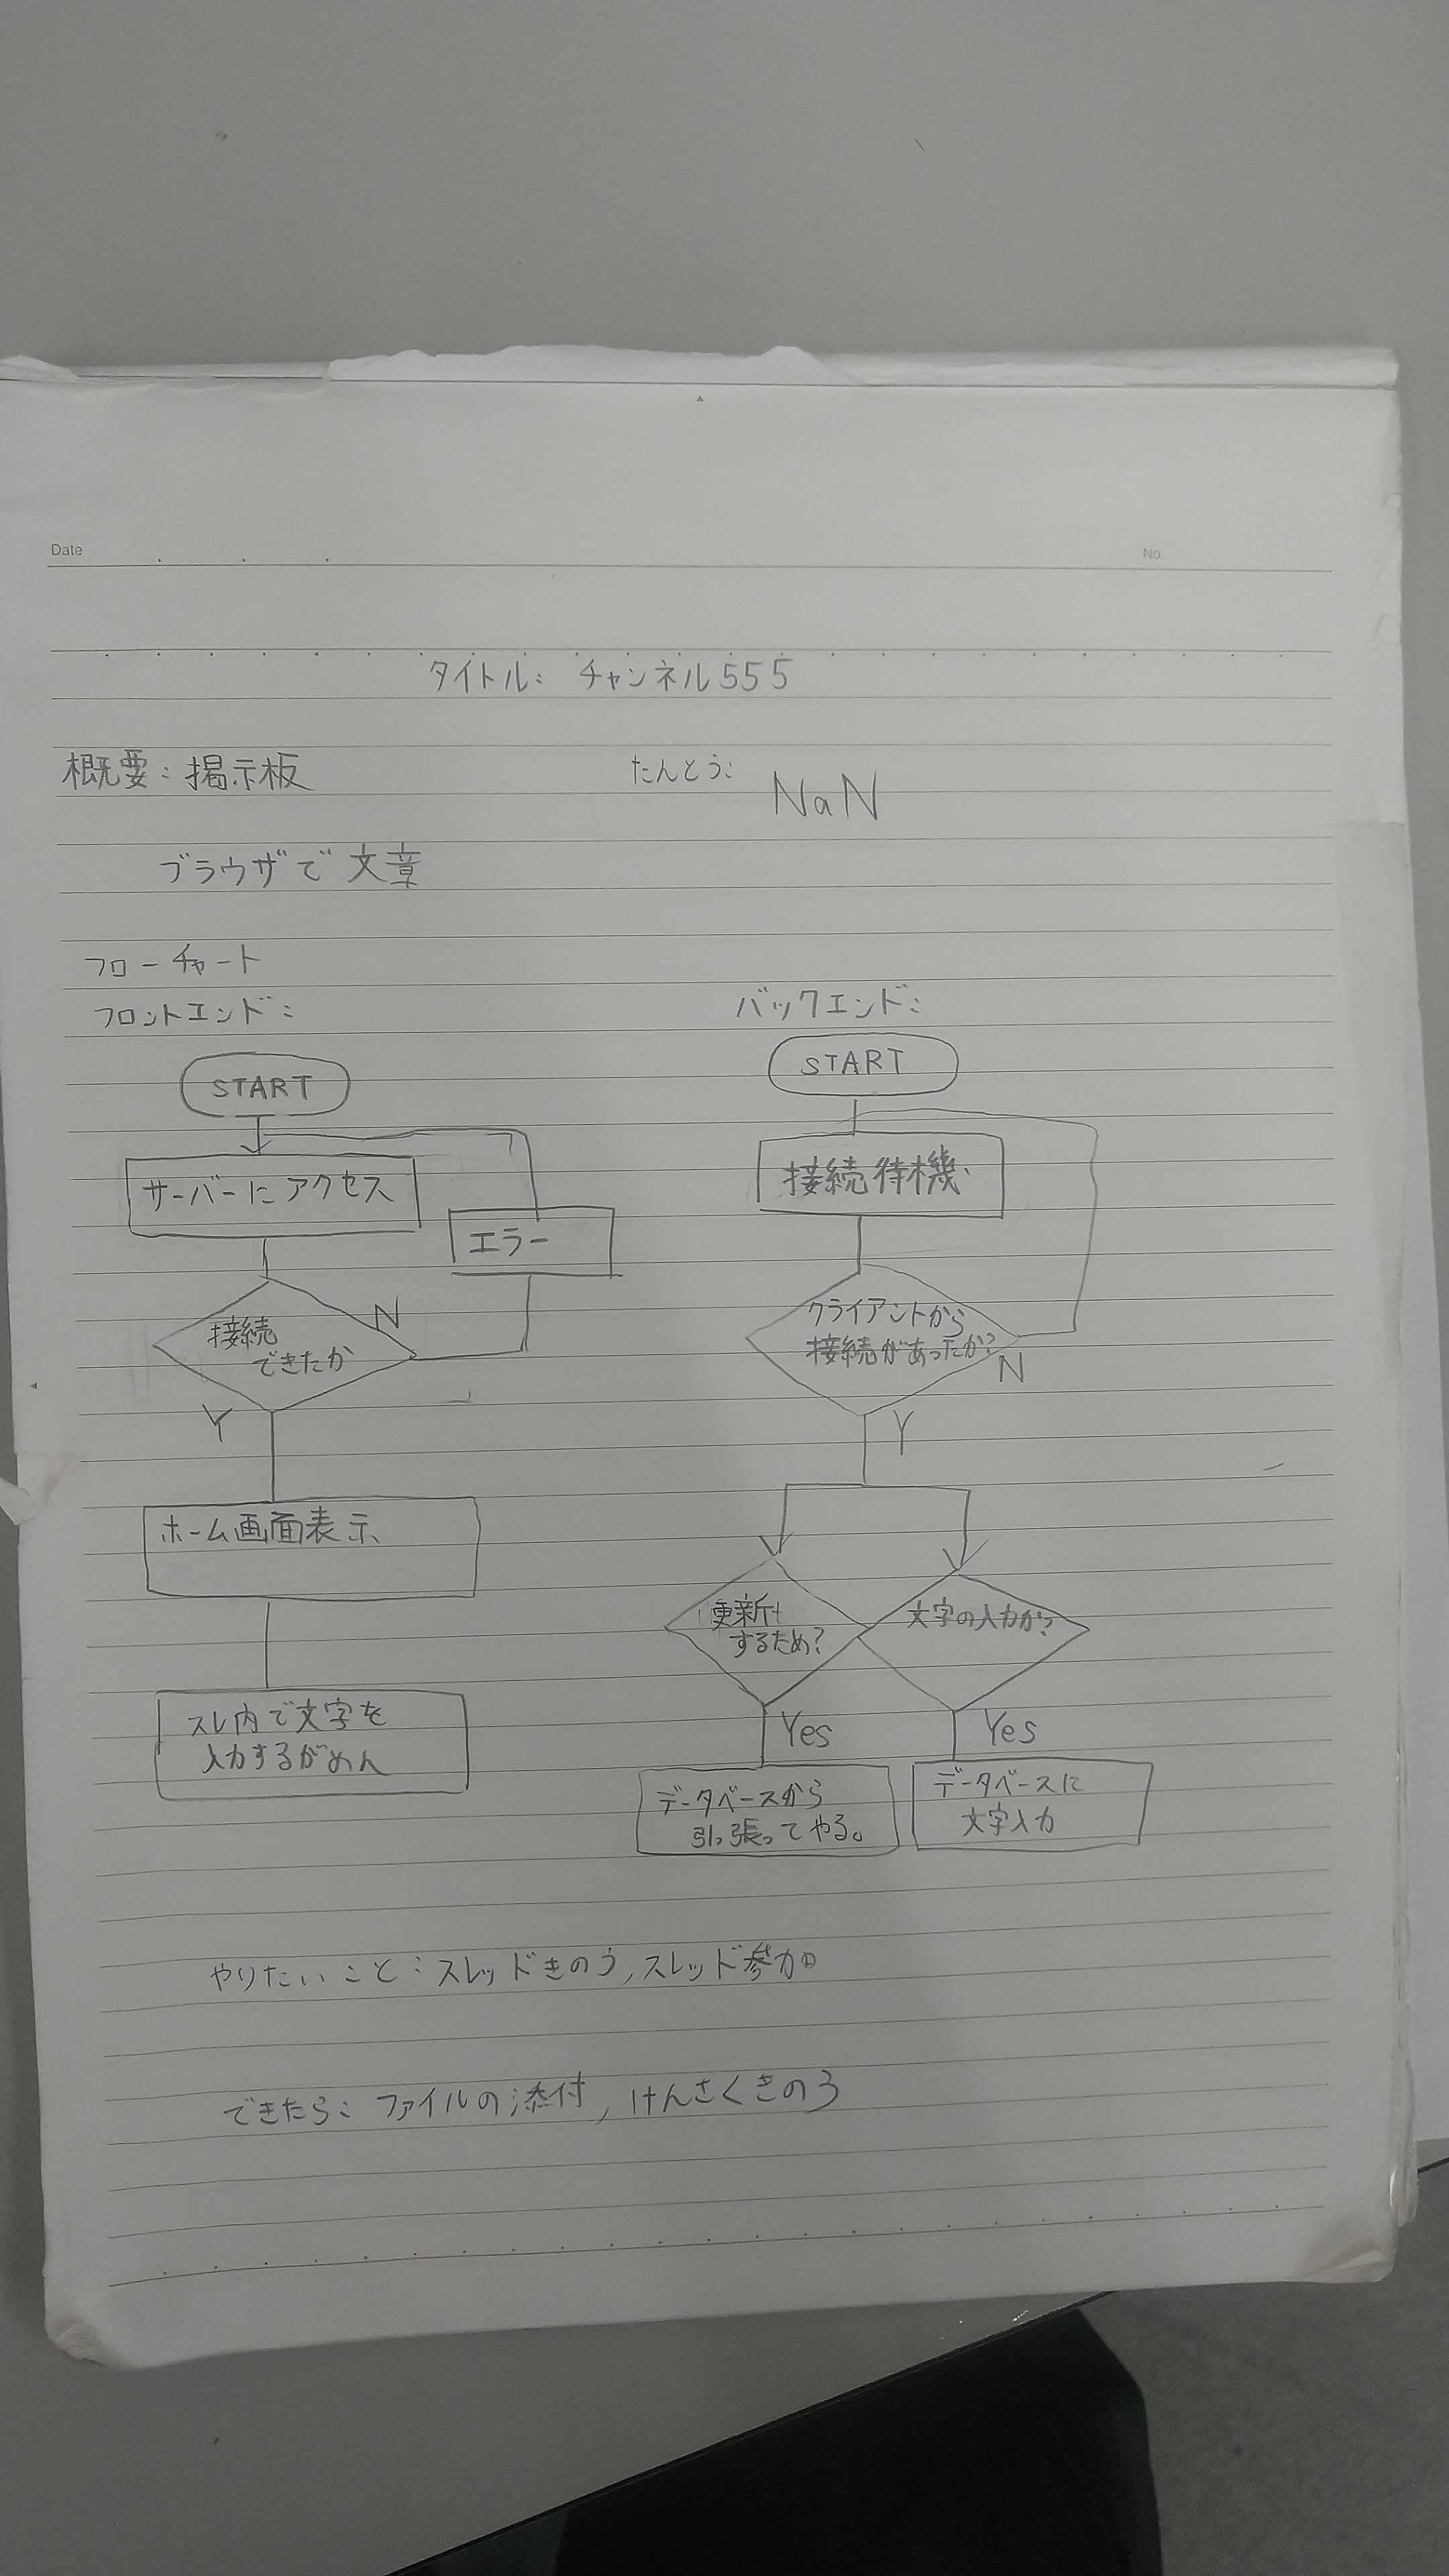 Date
No.
タイトル: チャンネル555
概要: 掲示板
たんとう:
NaN
ブラウザで文章
フローチャート
フロントエンド:
START
サーバーにアクセス
エラー
接続
できたか
N
Y
ホーム画面表示
スレ内で文字を
入力するがめん
バックエンド:
START
接続待機
クライアントから
接続があったか?
N
Y
更新
するため?
文字の入力か?
Yes
Yes
データベースから
引っ張ってやる。
データベースに
文字入力
やりたいこと: スレッドきのう, スレッド参加
できたら: ファイルの添付, けんさくきのう